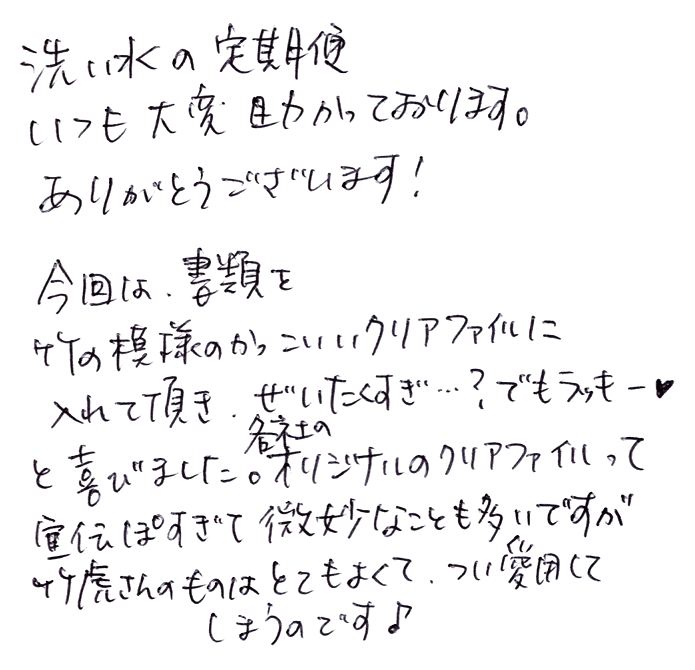 洗い水の定期便
いつも大変助かっております。
ありがとうございます!
今回は、書類を
竹の模様のかっこいいクリアファイルに
入れて頂き、ぜいたくすぎ…?でもラッキー♥
と喜びました。各社のオリジナルのクリアファイルって
宣伝ぽすぎて微妙なことも多いですが
竹虎さんのものはとてもよくて、つい愛用して
しまうのです♪